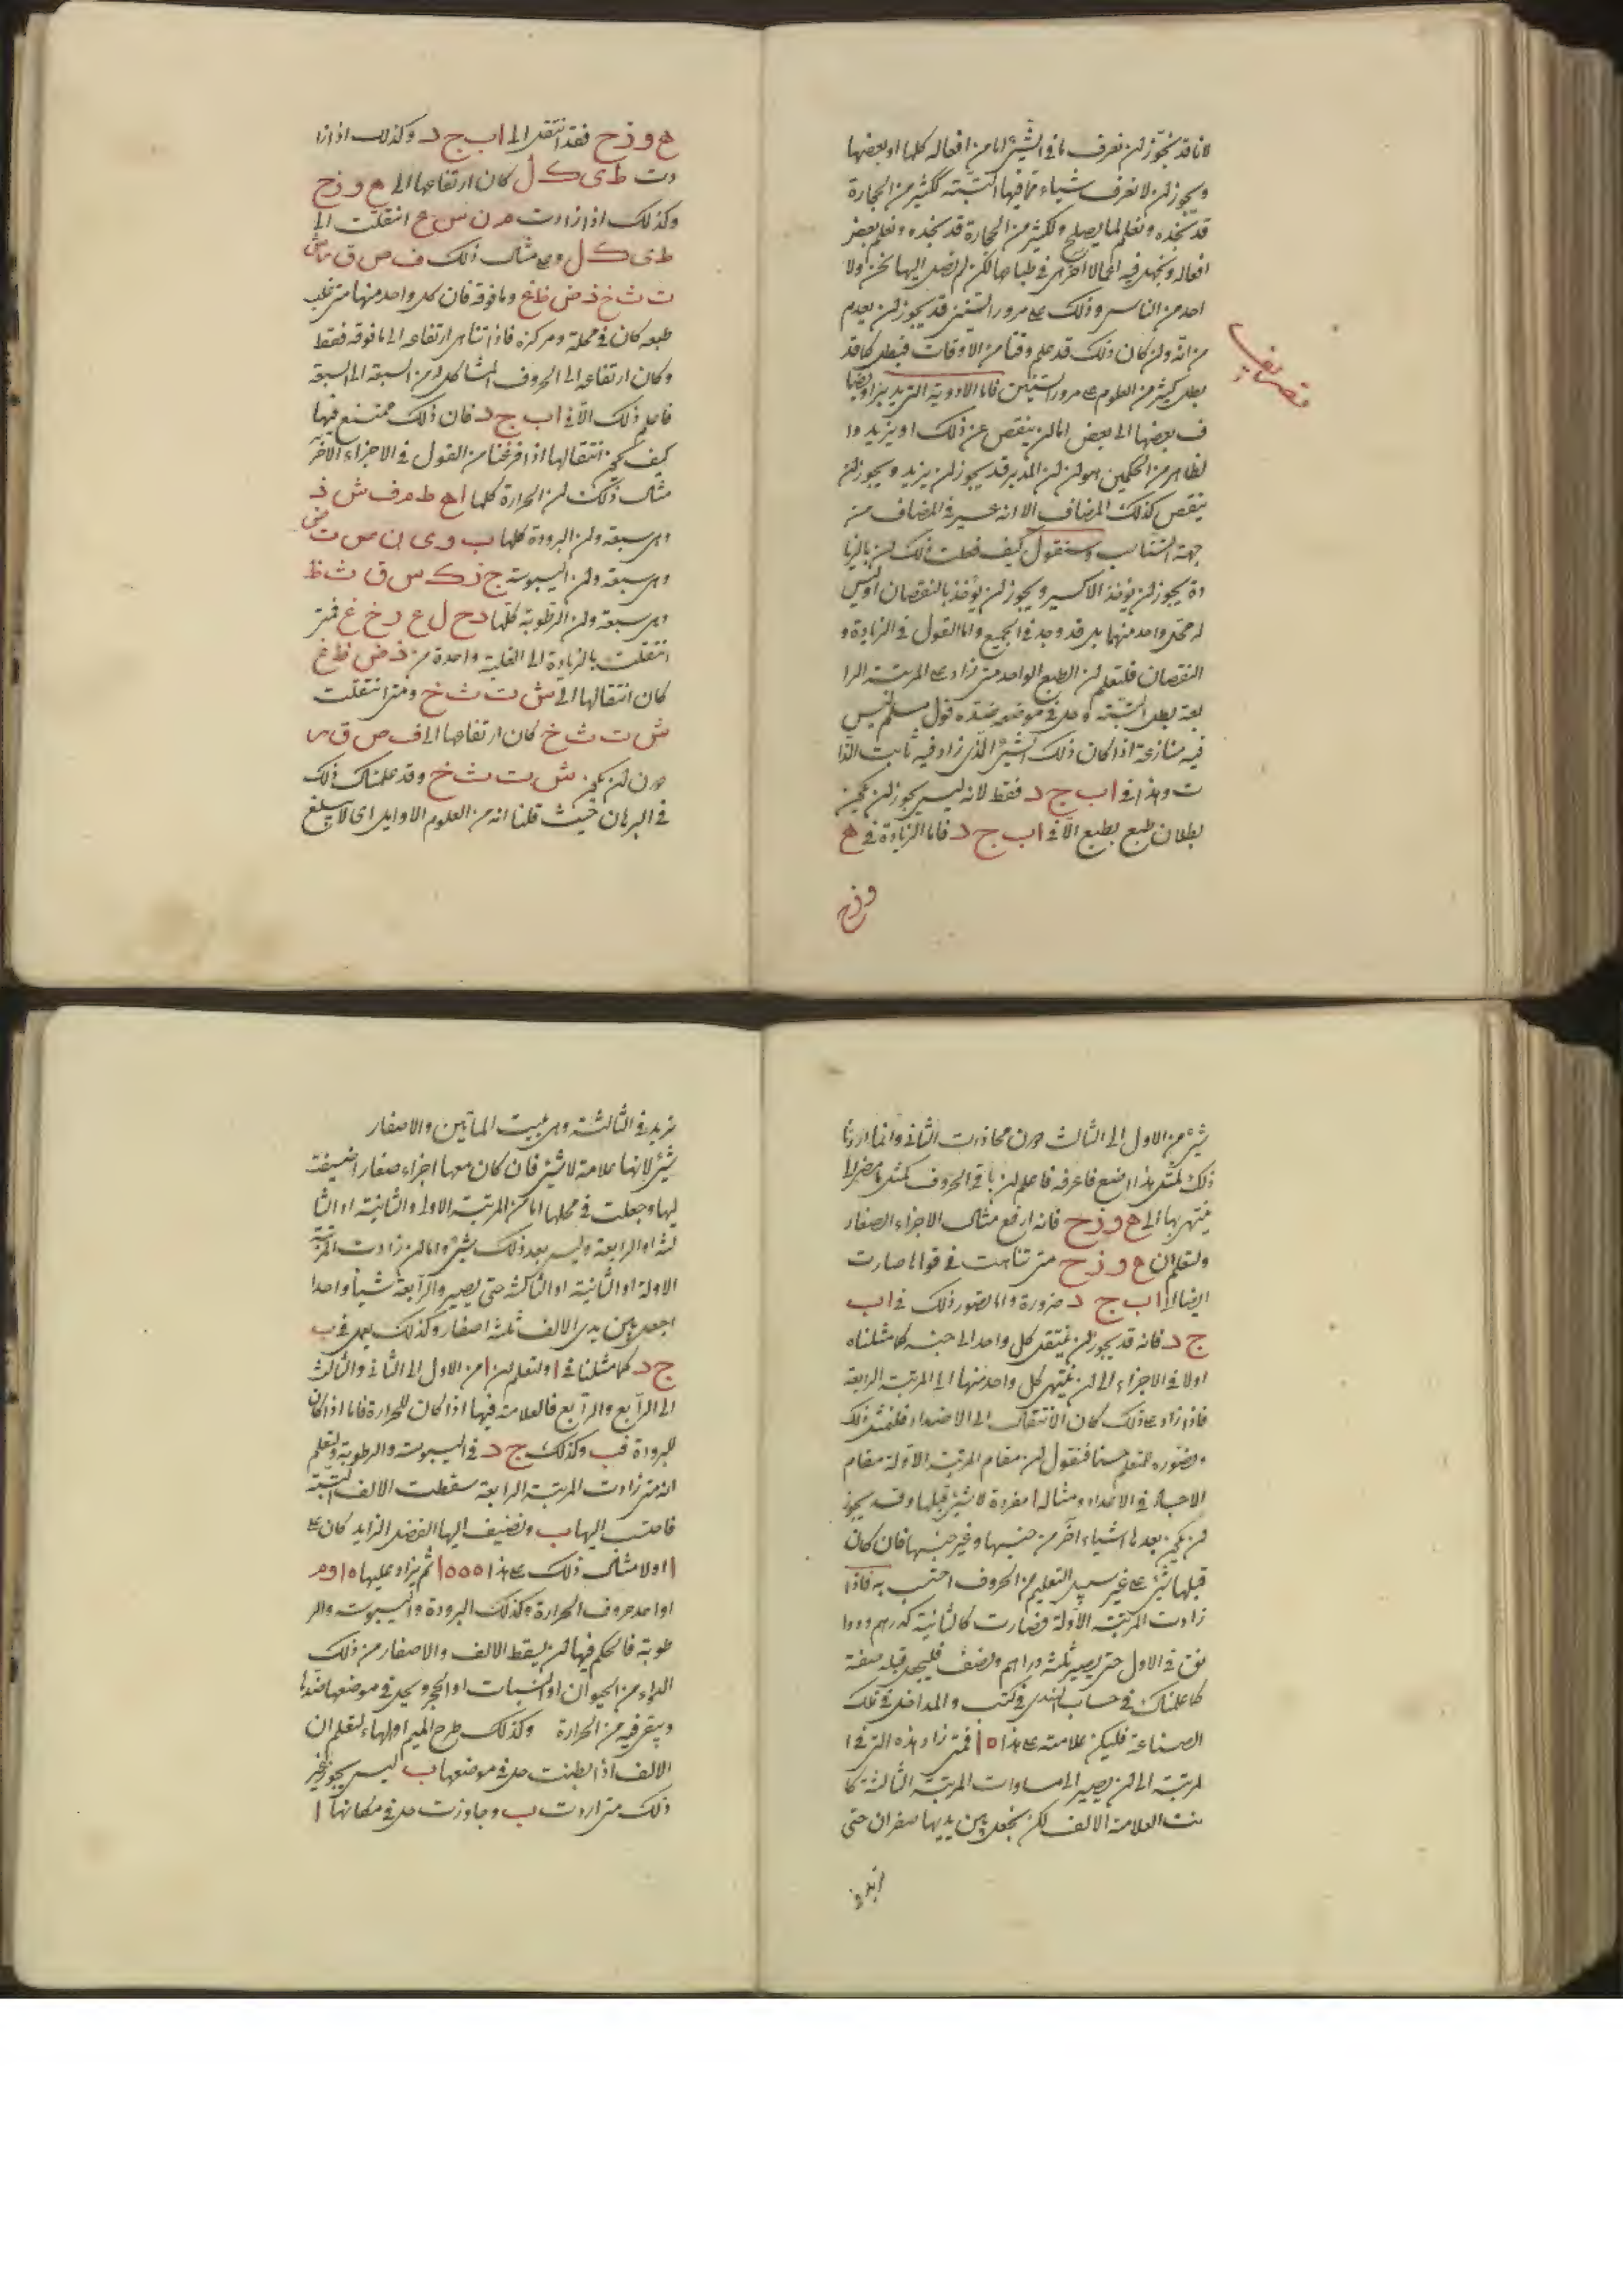 لانا قد يجوز ان نعرف ما في الشيء اما من افعاله كلها او بعضها
ويجوز ان لا نعرف شياء مما فيها البتّته ككثير من الحجارة
قد نجده ونعلم لما يصلح ولكثير من الحجارة قد نجده ونعلم بعض
افعاله ونجهل فيه افعالا اخرى في طباعها لكن لم نصل اليها نحن ولا
احد من الناس وذلك على مرور السنين قد يجوز ان يعدم
من انه وان كان ذلك قد علم وقتا من الاوقات فبطل كما قد
بطل كثير من العلوم على مرور السنين فاما الادوية التي
ف بعضها الى بعض اما ان ينقص عن ذلك او يزيد وا
لظاهر من الحكمين هو ان المدبر قد يجوز ان يزيد ويجوز ان
ينقص كذلك المضاف الا انه عسير في المضاف من
جهة التناسب وسنقول كيف فعلت ذلك ان بالزيا
دة يجوز ان يؤخذ الاكسير ويجوز ان يؤخذ بالنقصان اوليس
له محل واحد منهما بل قد وجد في الجميع واما القول في الزيادة و
النقصان فلتعلم ان الطبع الواحد متى زاد على المرتبة الرا
بعة بطل البتّته وحل في موضعه ضده قول مسلم ليس
فيه منازعة اذا كان ذلك الشيء الذي زاد فيه ثابت الذا
ت وهذا في ا ب ج د فقط لانه ليس يجوز ان يكون
بطلان طبع بطبع الا في ا ب ج د فاما الزيادة في ه
و ز ح
ه و ز ح فقد انتقل الى ا ب ج د وكذلك اذا زا
دت ط ى ك ل كان ارتفاعها الى ه و ز ح
وكذلك اذا زادت م ن س ع انتقلت الى
ط ى ك ل وعلى مثال ذلك ف ص ق ر ش
ت ث خ ذ ض ظ غ وما فوقه فان كل واحد منها متى غلب
طبعه كان في محله ومركزه فاذا تناهى ارتفاعه الى ما فوقه فقط
وكان ارتفاعه الى الحروف المشاكل له من السبعة الى السبعة
فاعلم ذلك الا في ا ب ج د فان ذلك ممتنع فيها
كيف يكون انتقالها اذا فرغنا من القول في الاجزاء الاخر
مثال ذلك ان الحرارة كلها ا ه ط م ف ش ذ
وهي سبعة وان البرودة كلها ب و ى ن ص ت ض
وهي سبعة وان اليبوسة ج ز ك س ق ث ظ
وهي سبعة وان الرطوبة كلها د ح ل ع ر خ غ فمتى
انتقلت بالزيادة الى الغلبة واحدة من ذ ض ظ غ
كان انتقالها الى ش ت ث خ ومتى انتقلت
ش ت ث خ كان ارتفاعها الى ف ص ق ر
دون ان يكون ش ت ث خ وقد علمناك ذلك
في البرهان حيث قلنا انه من العلوم الاوايل اى لا يبلغ
شيء من الاول الى الثالث دون محاذات الثاني وانما اردنا
ذلك لمثل هذا الموضع فاعرفه فاعلم ان باقي الحروف كمثل ما مضى الا
ينتهى بها الى ه و ز ح فانه ارفع مثال الاجزاء الصغار
ولتعلم ان ه و ز ح متى تناهت في قواها صارت
ايضا الى ا ب ج د ضرورة واما تصور ذلك في ا ب
ج د فانه قد يجوز ان ينتقل كل واحد الى جنسه كما مثلناه
اولا في الاجزاء الى ان ينتهى كل واحد منها الى المرتبة الرابعة
فاذا زاد على ذلك كان الانتقال الى الاضداد فلنمثل ذلك
ونصوره للمتعلم حسنا فنقول ان مقام المرتبة الاولة مقام
الاحاد في الاعداد ومثاله ا مفردة لا شيء قبلها وقد يجوز
ان يكون بعدها اشياء اخر من جنسها وغير جنسها فان كان
قبلها شيء على غير سبيل التعليم من الحروف احتسب به فاذا
زادت المرتبة الاولة فصارت كالثانية كدرهم ودوا
نق في الاول حتى يصير ثلثة دراهم ونصف فليجعل قبله صفة
كما علمناك في حساب الهندى في كتب والمداخل في تلك
الصناعة فليكن علامته على هذا ٥ا فمتى زاد هذه التي في ا
لمرتبة الى ان يصير الى مساوات المرتبة الثالثة كا
نت العلامة الالف لكن يجعل بين يديها صفران حتى
نريد في الثالثة وهي بيت الماتين والاصفار
شيء لانها علامة لا شيء فان كان معها اجزاء صغار اضيفت
اليها وجعلت في محلها اما من المرتبة الاولى والثانية او الثا
لثة او الرابعة وليس بعد ذلك شيء واما ان زادت المرتبة
الاولة او الثانية او الثالثة حتى يصير والرابعة شيأ واحدا
اجعل بين يدى الالف ثلثة اصفار وكذلك يعمل في ب
ج د كما مثلنا في ا ولتعلم ان ا من الاول الى الثاني والثالث
الى الرابع والرابع فالعلامة فيها اذا كان للحرارة فاما اذا كان
للبرودة فب وكذلك ج د في اليبوسة والرطوبة ولتعلم
انه متى زادت المرتبة الرابعة سقطت الالف البتة
فاحتسب اليها ب ونضيف اليها الفضل الزايد كان على
ا اولا مثال ذلك على هذا ٥٥٥ا ثم يزاد عليها ٥ا و م
او احد حروف الحرارة وكذلك البرودة واليبوسة والر
طوبة فالحكم فيها ان يسقط الالف والاصفار من ذلك
الدواء من الحيوان او النبات او الحجر ويحل في موضعها ضدها
ويبقى فيه من الحرارة وكذلك طرح الميم او الهاء لتعلم ان
الالف اذا بطنت حل في موضعها ب ليس يجوز غير
ذلك متى اردت ب وجاوزت حل في مكانها ا